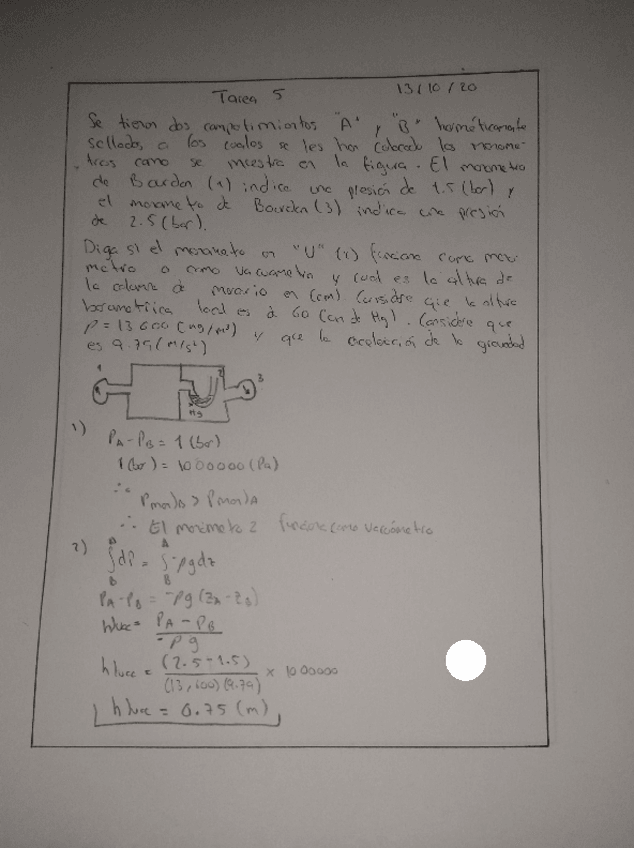 Tarea 5 13/10/20
Se tienen dos compartimientos "A" y "B" herméticamente
sellados, a los cuales se les han colocado los manome-
tros como se muestra en la figura. El manometro
de Bourdon (1) indica una presión de 1.5 (bar) y
el manometro de Bourdon (3) indica una presión
de 2.5 (bar).
Diga si el manometro en "U" (2) funciona como mano-
metro o como vacuometro y cual es la altura de
la columna de mercurio en (cm). Considre que la altura
barometrica local es de 60 (cm de Hg). Considre que
ρ = 13 600 (kg/m³) y que la aceleración de la gravedad
es 9.79 (m/s²)
1 2 3
Hg
1)
PA - PB = 1 (bar)
1 (bar) = 1000000 (Pa)
∴ Pman)B > Pman)A
∴ El manometro 2 funciona como vacuómetro
2)
∫dP = ∫-ρgdz
PA - PB = -ρg (ZA - ZB)
PA - PB
-ρg
(2.5 - 1.5)
(13,600)(9.79) x 1000000
= 0.75 (m)